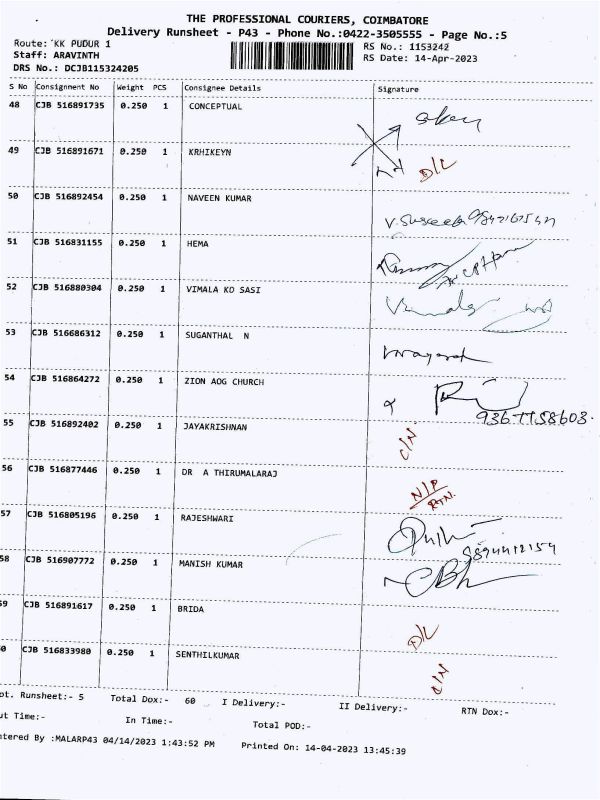 THE PROFESSIONAL COURIERS, COIMBATORE
Delivery Runsheet - P43 - Phone No.:0422-3505555 - Page No.:5
Route: KK PUDUR 1
Staff: ARAVINTH
DRS No.: DCJB115324205
RS No.: 1153242
RS Date: 14-Apr-2023
S No Consignment No Weight PCS Consignee Details Signature
48 CJB 516891735 0.250 1 CONCEPTUAL
49 CJB 516891671 0.250 1 KRHIKEYN D/L
50 CJB 516892454 0.250 1 NAVEEN KUMAR
51 CJB 516831155 0.250 1 HEMA
52 CJB 516880304 0.250 1 VIMALA KO SASI
53 CJB 516686312 0.250 1 SUGANTHAL N
54 CJB 516864272 0.250 1 ZION AOG CHURCH
55 CJB 516892402 0.250 1 JAYAKRISHNAN C/N
56 CJB 516877446 0.250 1 DR A THIRUMALARAJ N/P RTN.
57 CJB 516805196 0.250 1 RAJESHWARI
58 CJB 516907772 0.250 1 MANISH KUMAR
59 CJB 516891617 0.250 1 BRIDA D/L
0 CJB 516833980 0.250 1 SENTHILKUMAR C/N
pt. Runsheet:- 5 Total Dox:- 60 I Delivery:- II Delivery:- RTN Dox:-
ut Time:- In Time:- Total POD:-
ntered By :MALARP43 04/14/2023 1:43:52 PM Printed On: 14-04-2023 13:45:39